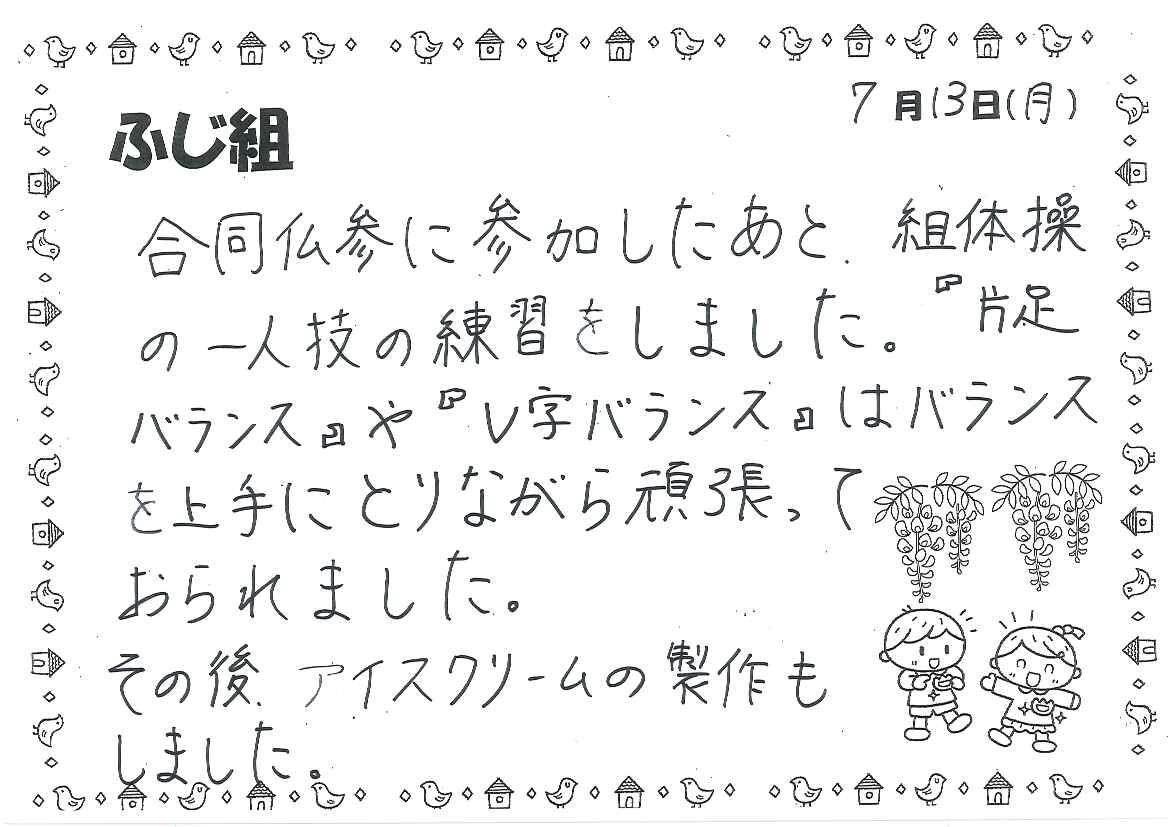 7月13日(月)
ふじ組
合同仏参に参加したあと、組体操
の一人技の練習をしました。『片足
バランス』や『V字バランス』はバランス
を上手にとりながら頑張って
おられました。
その後、アイスクリームの製作も
しました。